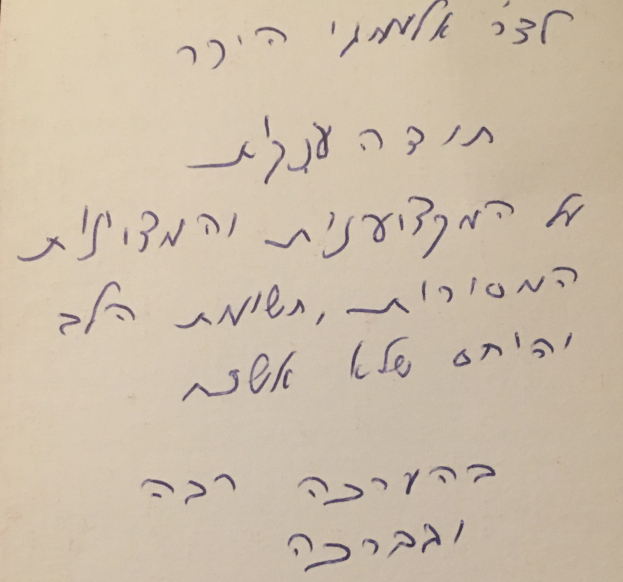 לד״ר אלמגי היקר
תודה ענקית
על המקצוענית והמצוינות
המסורות, תשומת הלב
והיחס שלא אשכח
בהערכה רבה
וגברכה